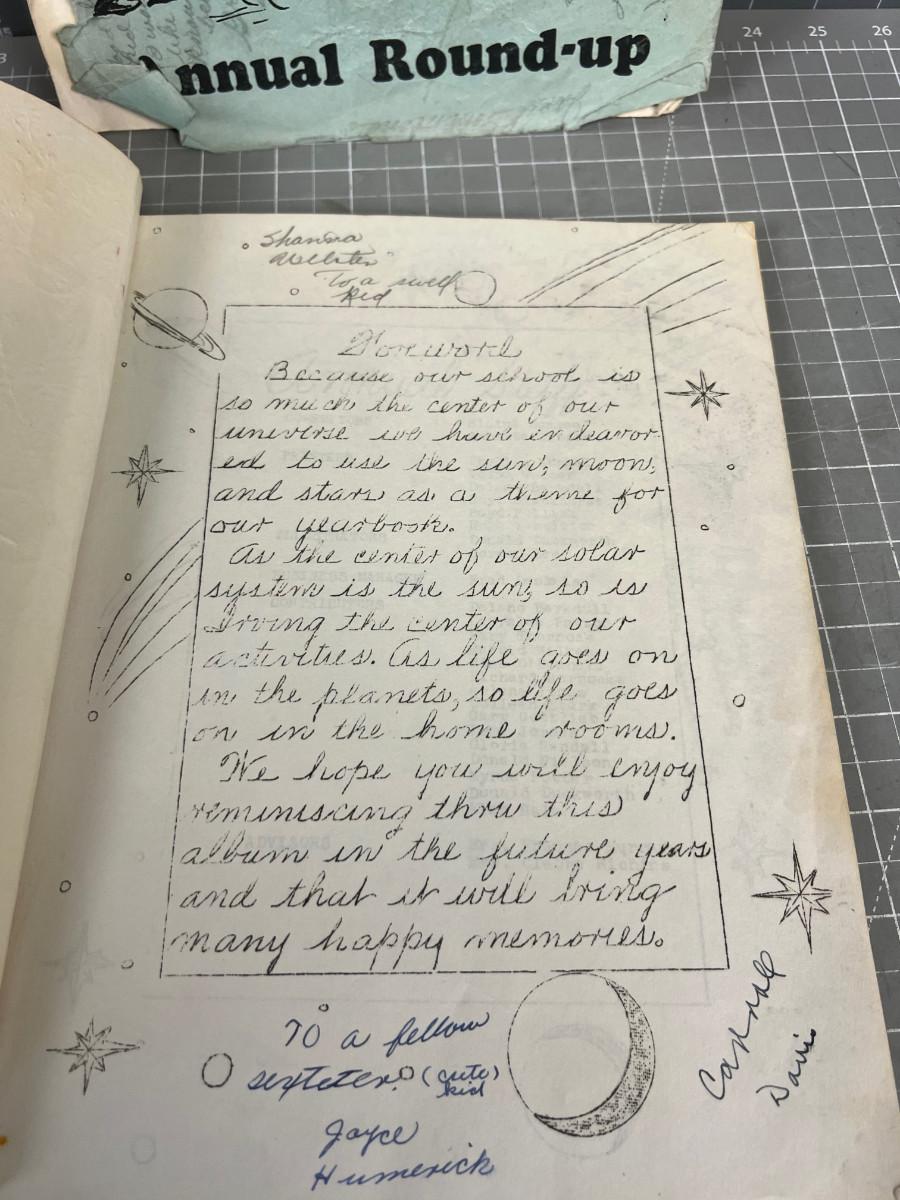 Annual Round-up
24 25 26
Shanna
Webster
"To a swell
kid"
Foreword
Because our school is
so much the center of our
universe we have endeavor-
ed to use the sun, moon,
and stars as a theme for
our yearbook.
As the center of our solar
system is the sun, so is
Irving the center of our
activities. As life goes on
in the planets, so life goes
on in the home rooms.
We hope you will enjoy
reminiscing thru this
album in the future years
and that it will bring
many happy memories.
To a fellow
sexteter. (cute)
kid
Joyce
Humerick
Davis